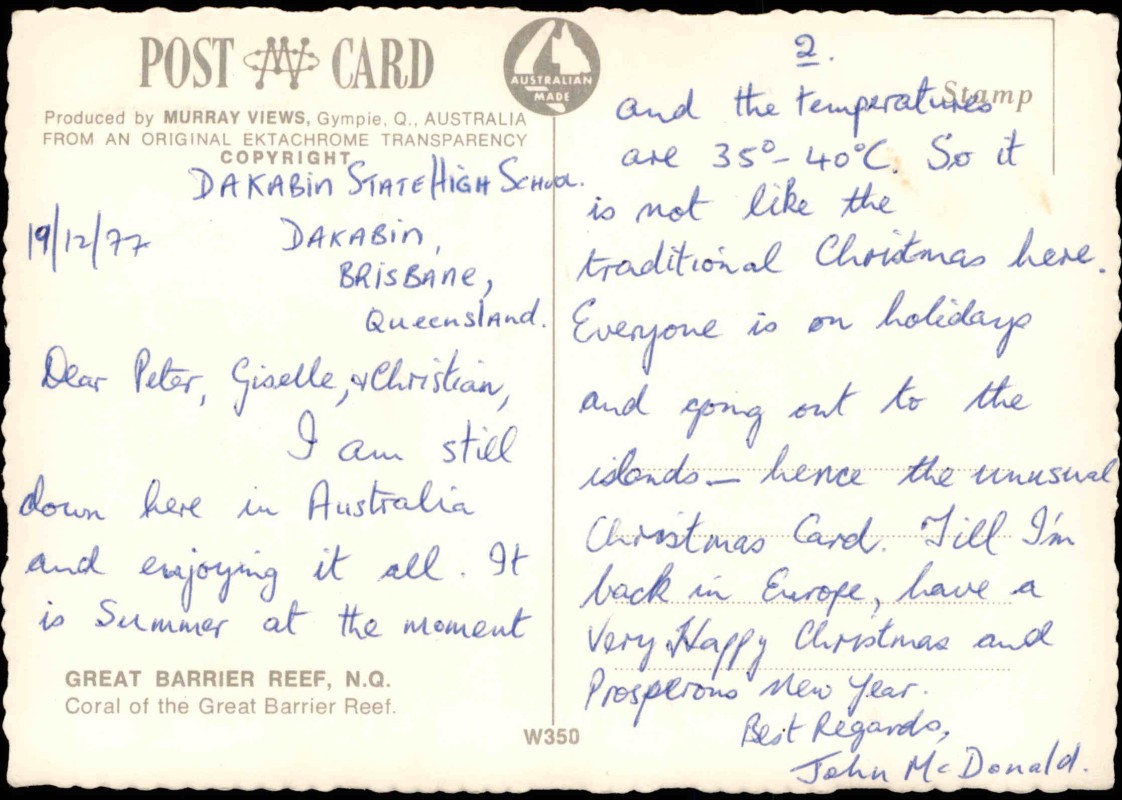 POST CARD
AUSTRALIAN
MADE
Produced by MURRAY VIEWS, Gympie, Q., AUSTRALIA
FROM AN ORIGINAL EKTACHROME TRANSPARENCY
COPYRIGHT
DAKABIN STATE HIGH SCHOOL.
19/12/77
DAKABIN,
BRISBANE,
Queensland.
Dear Peter, Giselle, & Christian,
I am still
down here in Australia
and enjoying it all. It
is Summer at the moment
GREAT BARRIER REEF, N.Q.
Coral of the Great Barrier Reef.
W350
Stamp
2.
and the temperatures
are 35°- 40°C. So it
is not like the
traditional Christmas here.
Everyone is on holidays
and going out to the
islands — hence the unusual
Christmas Card. Till I'm
back in Europe, have a
Very Happy Christmas and
Prosperous New Year.
Best Regards,
John McDonald.